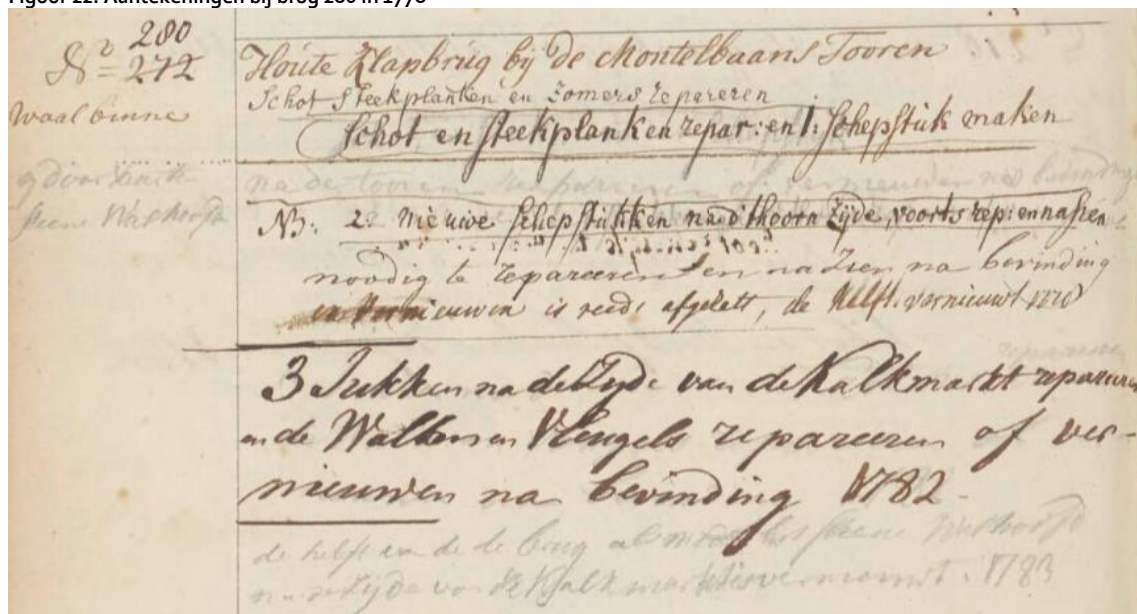 Figuur 22: Aantekeningen bij brug 280 in 1778
280
No 272
waal binne
Houte Klapbrug bij de Montelbaans Tooren
Schot Steekplanken en Zomers repareren
Schot en steekplanken repar: en 1: schepstuk maken
na de tooren repareeren of vernieuwen na bevinding
NB: 2: nieuwe schepstukken na d'thoorn zijde, voorts rep: en nasien
noodig te repareeren en na zien na bevinding
vernieuwen is reeds de helft vernieuwt
3 Jukken na de Zyde van de Kalkmarkt repareren
en de Walten en Vleugels repareeren of ver-
nieuwen na bevinding 1782
de helft van de brug
na de Zyde van de Kalk markt is vernieuwt 1783